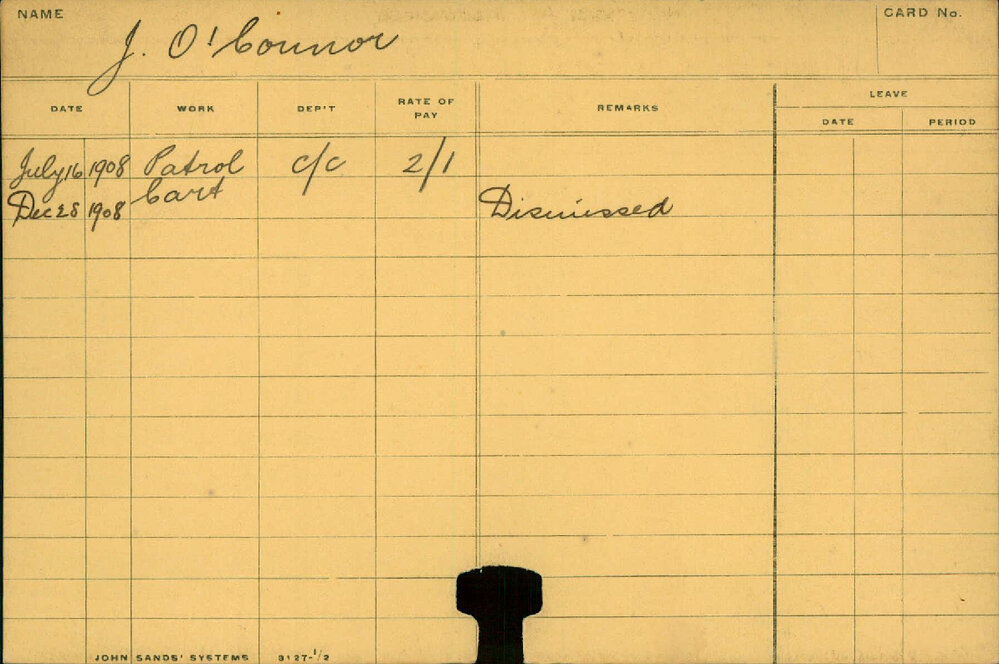 NAME
J. O'Connor
CARD No.
DATE WORK DEP'T RATE OF PAY REMARKS LEAVE
DATE PERIOD
July 16 1908 Patrol c/c 2/1
Cart
Dec 28 1908 Dismissed
JOHN SANDS' SYSTEMS 3127-1/2